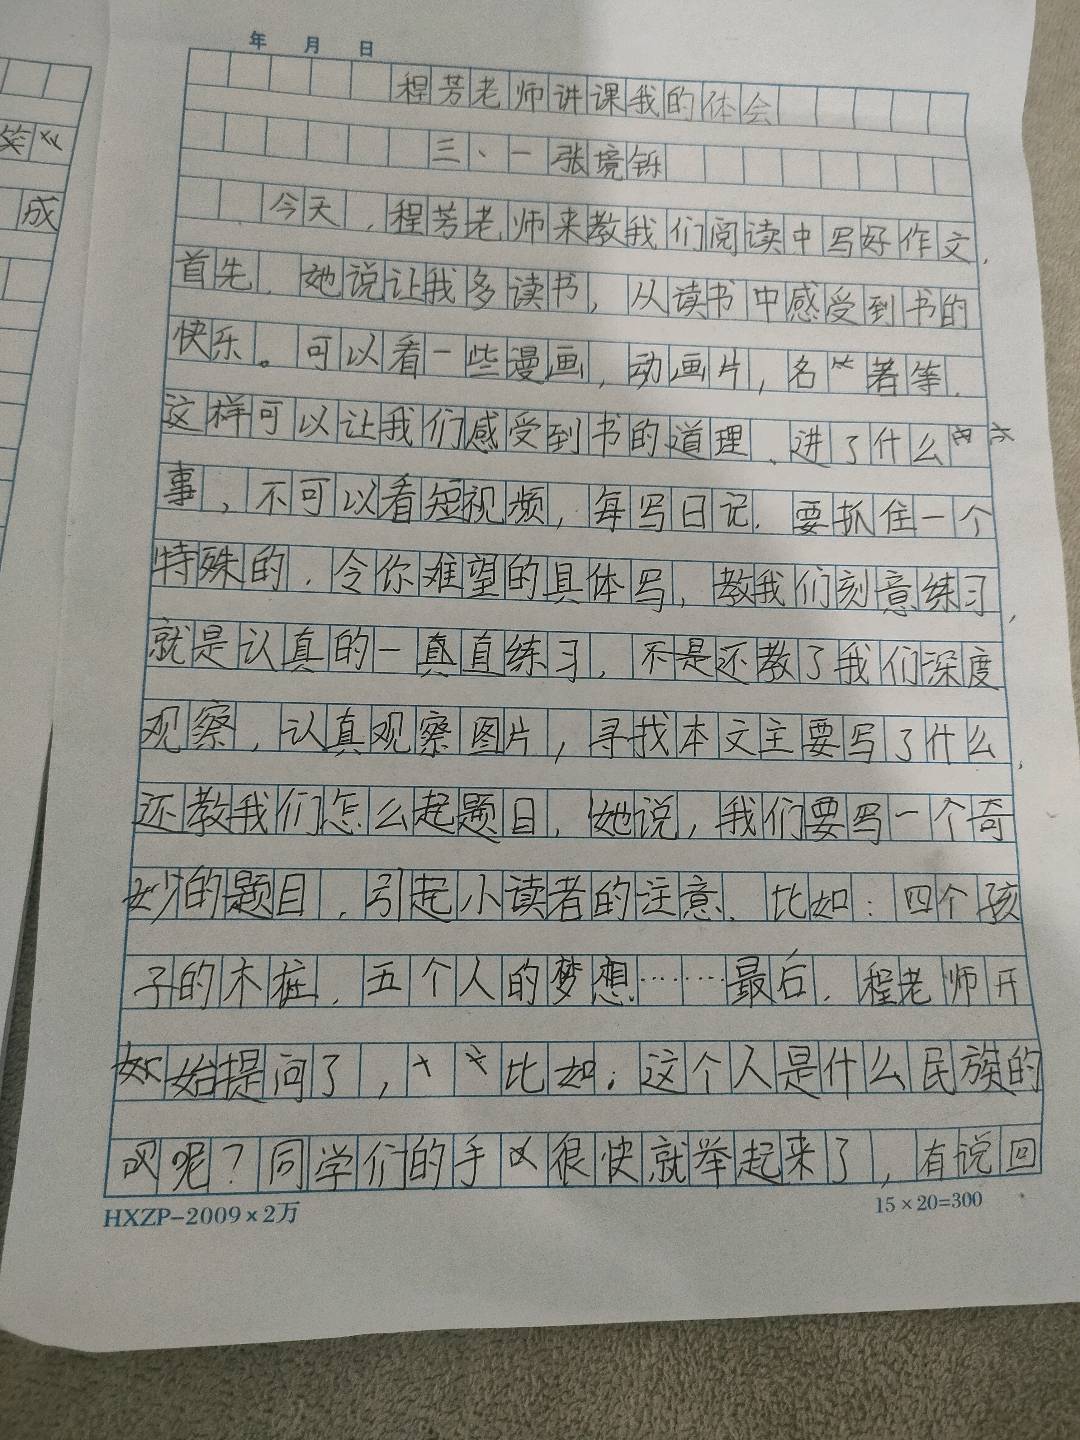 年 月 日
程芳老师讲课我的体会
三、一张境铄
今天，程芳老师来教我们阅读中写好作文，
首先，她说让我多读书，从读书中感受到书的
快乐。可以看一些漫画，动画片，名著等，
这样可以让我们感受到书的道理、进了什么
事，不可以看短视频，每写日记，要抓住一个
特殊的，令你难望的具体写，教我们刻意练习，
就是认真的一真直练习，不是还教了我们深度
观察，认真观察图片，寻找本文主要写了什么，
还教我们怎么起题目，她说，我们要写一个奇
妙的题目，引起小读者的注意，比如：四个孩
子的木桩，五个人的梦想………最后，程老师开
始提问了，比如：这个人是什么民族的
呢？同学们的手很快就举起来了，有说回
HXZP-2009×2万
15×20=300
笑
成